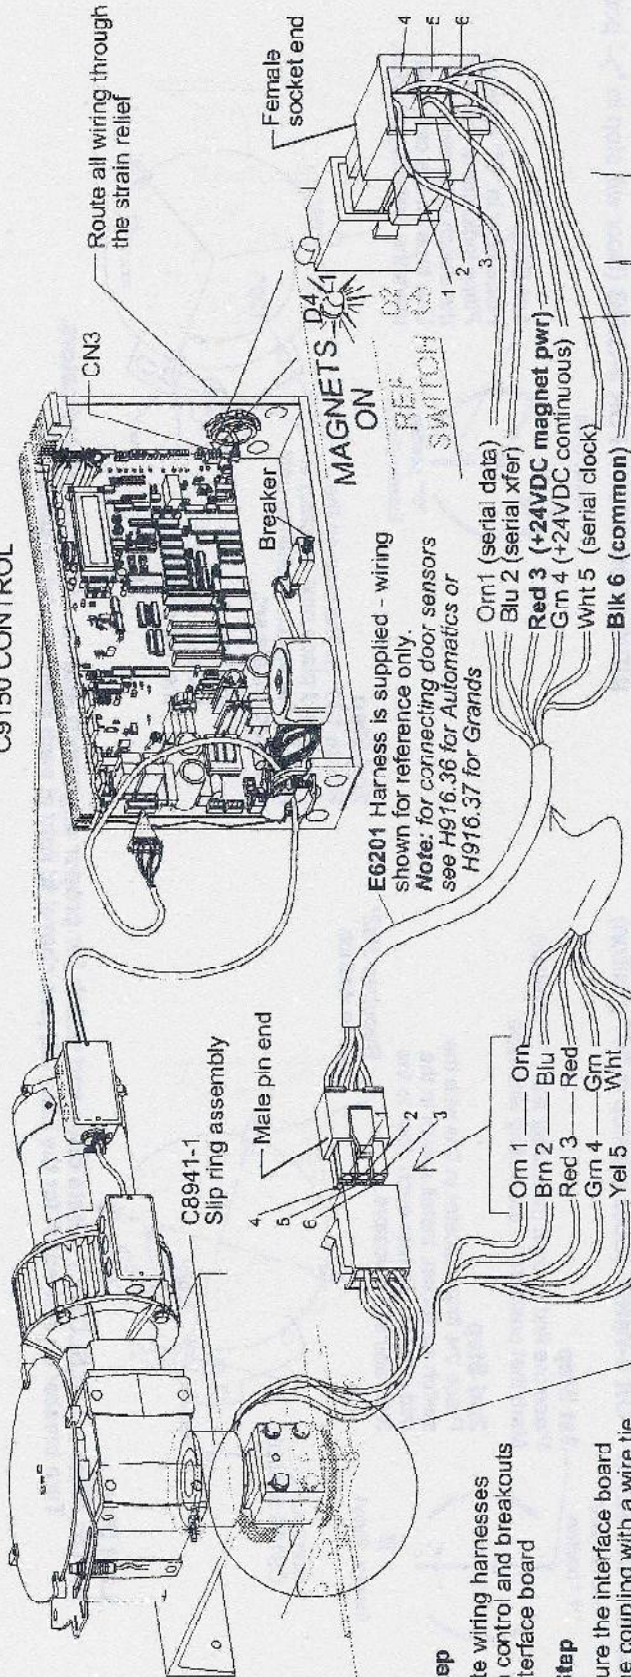 C9150 CONTROL
Route all wiring through
the strain relief
CN3
Female
socket end
4
5
6
1
2
3
MAGNETS
ON
D4
REF
SWITCH
Breaker
E6201 Harness is supplied - wiring
shown for reference only.
Note: for connecting door sensors
see H916.36 for Automatics or
H916.37 for Grands
Orn1 (serial data)
Blu 2 (serial xfer)
Red 3 (+24VDC magnet pwr)
Grn 4 (+24VDC continuous)
Wht 5 (serial clock)
Blk 6 (common)
C8941-1
Slip ring assembly
Male pin end
4
5
6
1
2
3
Orn 1 Orn
Brn 2 Blu
Red 3 Red
Grn 4 Grn
Yel 5 Wht
ep
te wiring harnesses
control and breakouts
terface board
tep
ure the interface board
e coupling with a wire tie